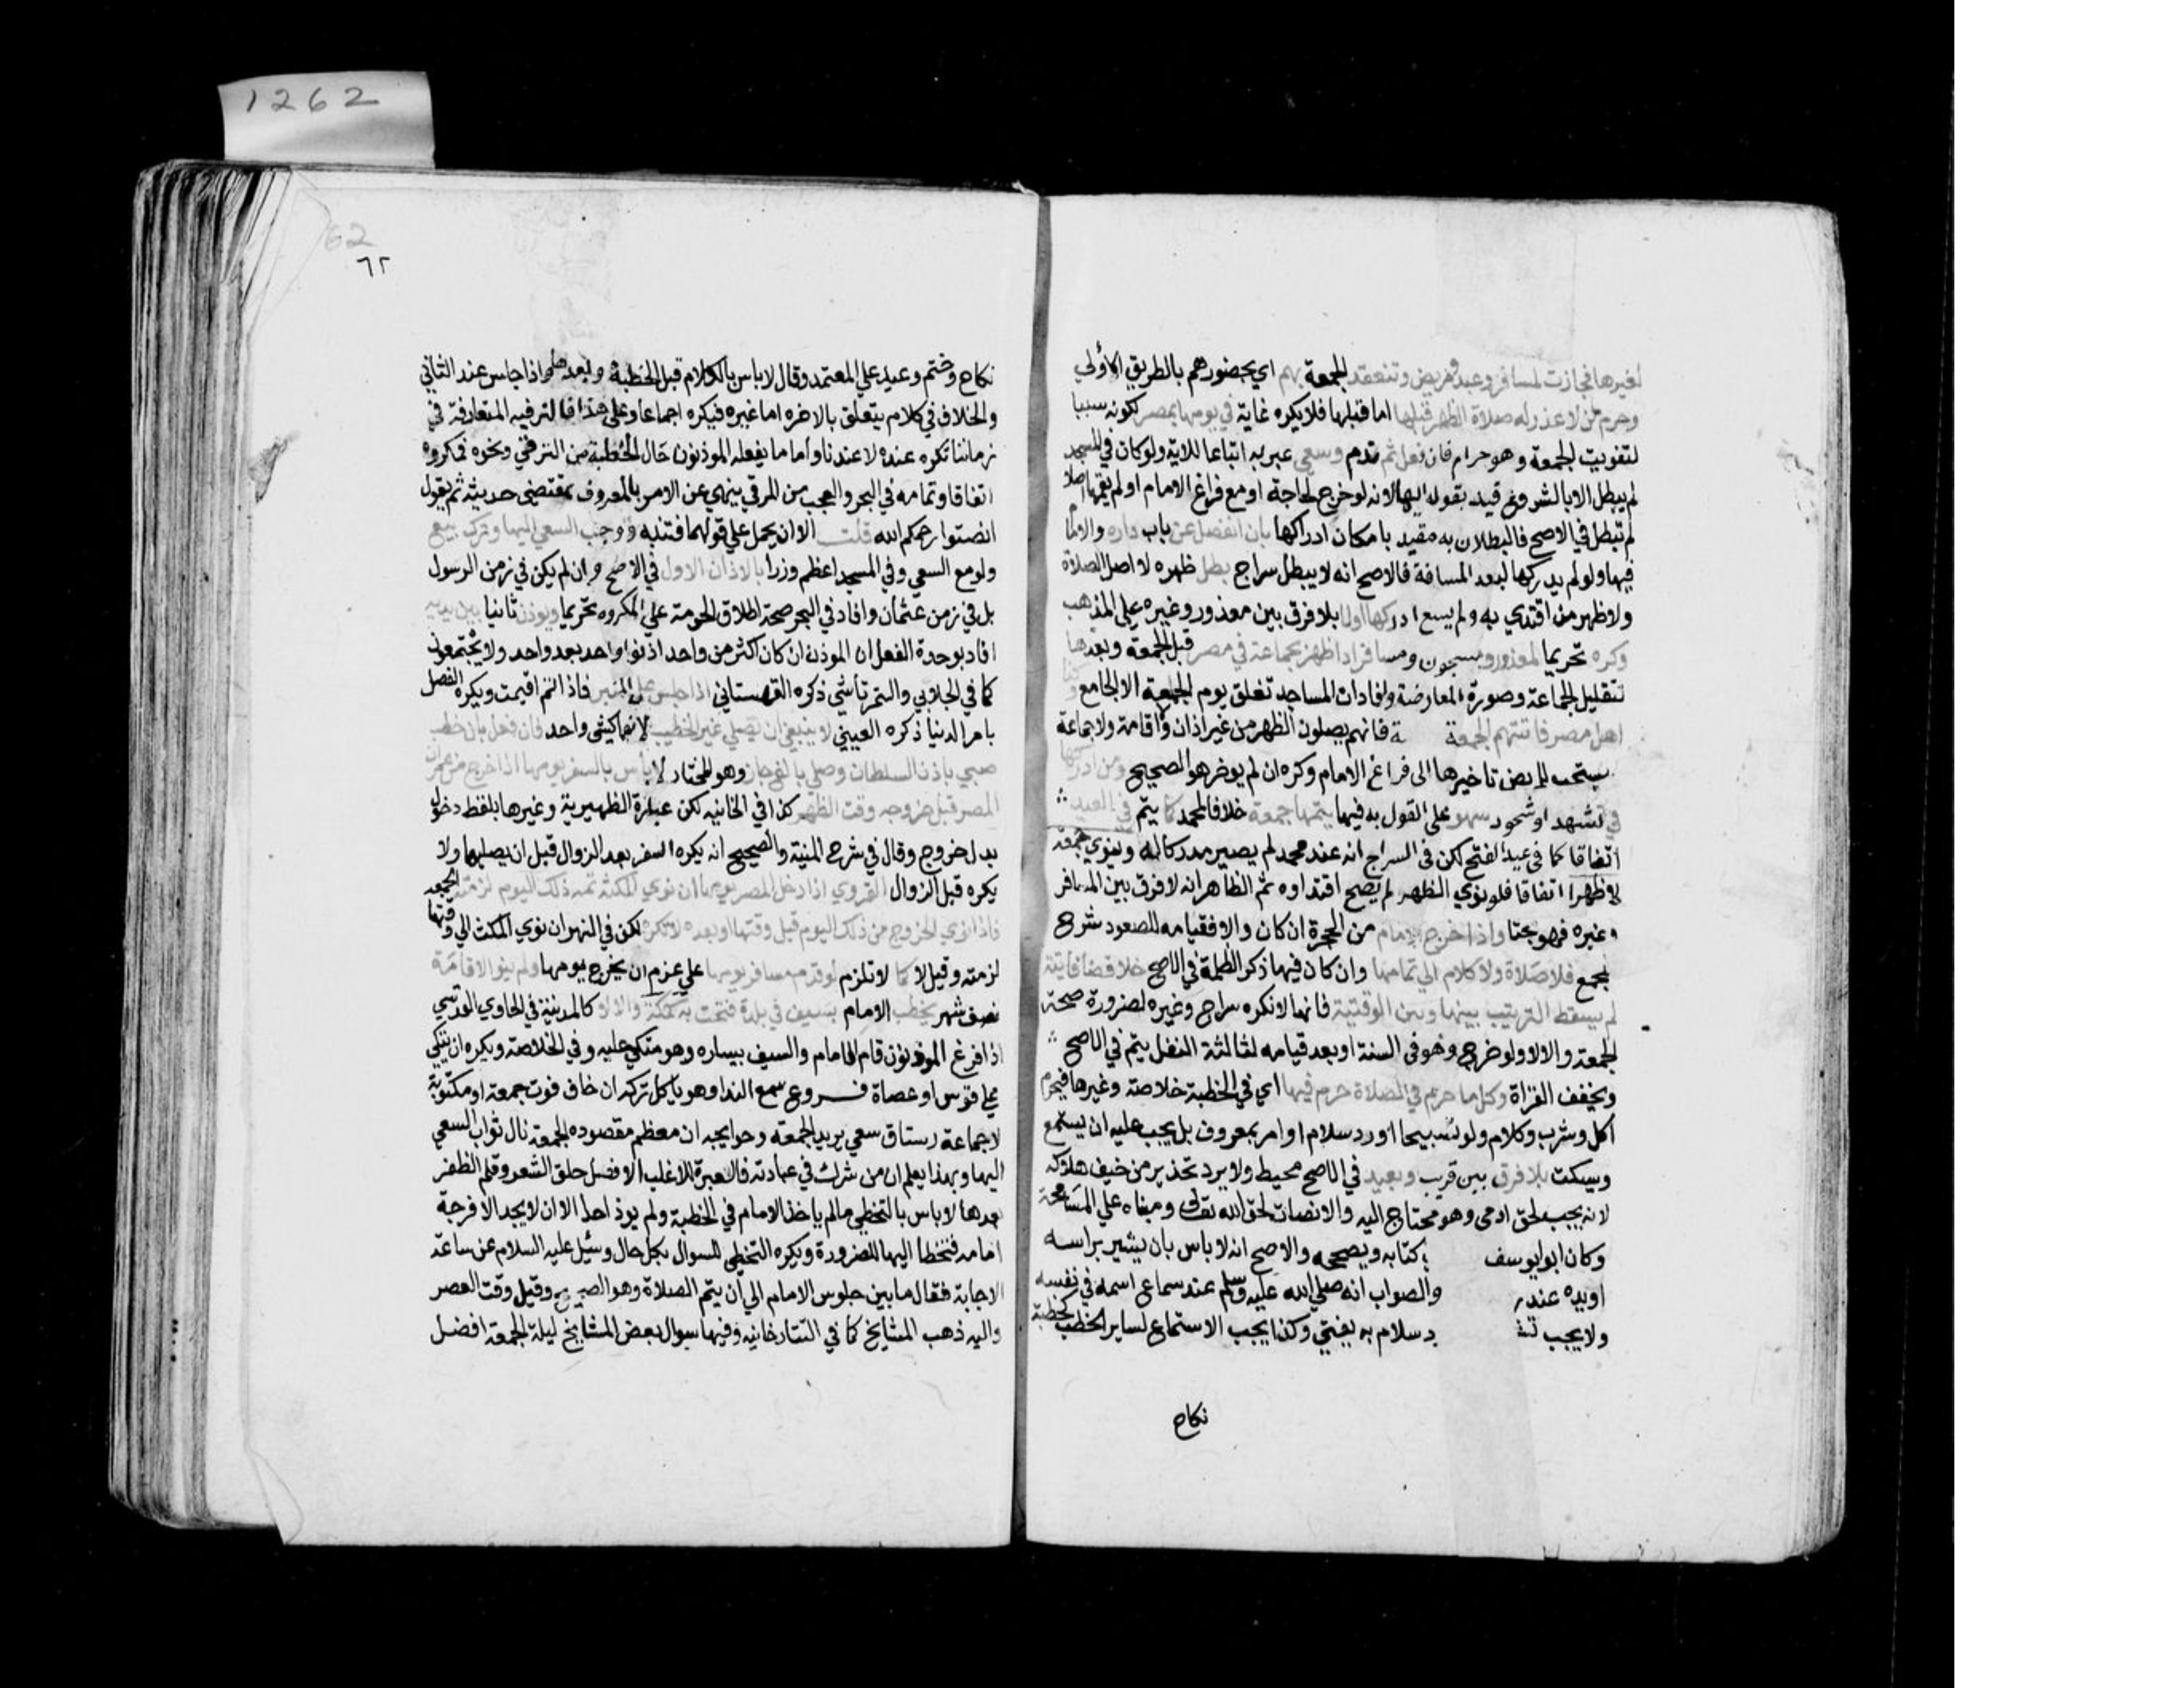 1262
لغيرها فجازت لمسافر وعبد ومريض وتنعقد الجمعة بهم اي بحضورهم بالطريق الاولي
وحرم لمن لا عذر له صلاة الظهر قبلها اما قبلها فلا يكره غاية في يومها بمصر لكونه سببا
لتفويت الجمعة وهو حرام فان فعل ثم ندم وسعي عبر به اتباعا للاية ولو كان في المسجد
لم يبطل الا بالشروع قيد بقوله اليها لانه لو خرج لحاجة او مع فراغ الامام او لم يقمها اصلا
لم تبطل في الاصح فالبطلان به مقيد بامكان ادراكها بان انفصل عن باب داره والامام
فيها ولو لم يدركها لبعد المسافة فالاصح انه لا يبطل سراج بطل ظهره لا اصل الصلاة
ولا ظهر من اقتدي به ولم يسع ادركها او لا بلا فرق بين معذور وغيره علي المذهب
وكره تحريما لمعذور ومسجون ومسافر اداظهر بجماعة في مصر قبل الجمعة وبعدها
لتقليل الجماعة وصورة المعارضة وافاد ان المساجد تغلق يوم الجمعة الا الجامع وكذا
اهل مصر فاتتهم الجمعة فانهم يصلون الظهر من غير اذان ولا اقامة ولا جماعة
يستحب للمريض تاخيرها الى فراغ الامام وكره ان لم يوخر هو الصحيح ومن ادركها
في تشهد او سجود سهو على القول به فيها يتمها جمعة خلافا لمحمد كما يتم في العيد
اتفاقا كما في عيد الفتح لكن في السراج انه عند محمد لم يصير مدركا له وينوي جمعة
لا ظهرا اتفاقا فلو نوي الظهر لم يصح اقتداوه ثم الظاهر انه لا فرق بين المسافر
وغيره فهو بحتا واذا خرج الامام من الحجرة ان كان والا فقيامه للصعود شرح
لمجمع فلا صلاة ولا كلام الي تمامها وان كان فيها ذكر الظلمة في الاصح خلا قضا فايتة
لم يسقط الترتيب بينها وبين الوقتية فانها لا تكره سراج وغيره لضرورة صحة
الجمعة والا لا ولو خرج وهو في السنة او بعد قيامه لثالثة النفل يتم في الاصح
ويخفف القراة وكل ما حرم في الصلاة حرم فيها اي في الخطبة خلاصة وغيرها فيحرم
اكل وشرب وكلام ولو تسبيحا او رد سلام او امر بمعروف بل يجب عليه ان يستمع
ويسكت بلا فرق بين قريب وبعيد في الاصح محيط ولا يرد تحذير من خيف هلاكه
لانه يجب لحق ادمي وهو محتاج اليه والانصات لحق الله تعالى ومبناه علي المسامحة
وكان ابو يوسف كتابه ويصححه والاصح انه لا باس بان يشير براسه
او يده عند والصواب انه صلي الله عليه وسلم عند سماع اسمه في نفسه
ولا يجب رد سلام به يفتي وكذا يجب الاستماع لساير الخطب كخطبة
نكاح
62
٦٢
نكاح وختم وعيد علي المعتمد وقال لا باس بالكلام قبل الخطبة وبعدها واذا جلس عند الثاني
والخلاف في كلام يتعلق بالاخره اما غيره فيكره اجماعا وعلى هذا فالترقيه المتعارفة في
زماننا تكره عنده لا عندنا واما ما يفعله الموذنون حال الخطبة من الترضي ونحوه فمكروه
اتفاقا وتمامه في البحر والعجب من المرقي ينهي عن الامر بالمعروف بمقتضي حديثه ثم يقول
انصتوا رحمكم الله قلت الا ان يحمل علي قولهما فتنبه ووجب السعي اليها وترك بيع
ولو مع السعي وفي المسجد اعظم وزرا بالاذان الاول في الاصح وان لم يكن في زمن الرسول
بل في زمن عثمان وافاد في البحر صحة اطلاق الحرمة علي المكروه تحريما ويوذن ثانيا بين يديه
افاد بوحدة الفعل ان الموذن ان كان اكثر من واحد اذنوا واحد بعد واحد ولا يجتمعون
كما في الجلابي والتمرتاشي ذكره القهستاني اذا جلس على المنبر فاذا اتم اقيمت ويكره الفصل
بامر الدنيا ذكره العيني لا ينبغي ان يصلي غير الخطيب لانهما كشي واحد فان فعل بان خطب
صبي باذن السلطان وصلي بالغ جاز وهو المختار لا باس بالسفر يومها اذا خرج من عمران
المصر قبل خروجه وقت الظهر كذا في الخانيه لكن عبارة الظهيرية وغيرها بلفظ دخول
بدل خروج وقال في شرح المنية والصحيح انه يكره السفر بعد الزوال قبل ان يصليها ولا
يكره قبل الزوال القروي اذا دخل المصر يومها ان نوي المكث ثمه ذلك اليوم لزمته الجمعه
فاذا نوي الخروج من ذلك اليوم قبل وقتها او بعده لا تكره لكن في النهر ان نوي المكث الي وقتها
لزمته وقيل لا كما لا تلزم لو قدم مسافر يومها علي عزم ان يخرج يومها ولم ينو الاقامة
نصف شهر يخطب الامام بسيف في بلدة فتحت به كمكة والا لا كالمدينة في الحاوي القدسي
اذا فرغ الموذنون قام الامام والسيف بيساره وهو متكي عليه وفي الخلاصة ويكره ان يتكي
علي قوس او عصاة فروع سمع الندا وهو ياكل تركه ان خاف فوت جمعة او مكتوبة
لا جماعة رستاق سعي يريد الجمعة وحوايجه ان معظم مقصوده الجمعة نال ثواب السعي
اليها وبهذا يعلم ان من شرك في عبادته فالعبرة للاغلب الافضل حلق الشعر وقلم الظفر
بعدها لا باس بالتخطي ما لم ياخذ الامام في الخطبة ولم يوذ احدا الا ان لا يجد الا فرجة
امامه فتخطا اليها للضرورة ويكره التخطي للسوال بكل حال وسئل عليه السلام عن ساعة
الاجابة فقال ما بين جلوس الامام الي ان يتم الصلاة وهو الصحيح وقيل وقت العصر
واليه ذهب المشايخ كما في التتارخانيه وفيها سوال بعض المشايخ ليلة الجمعة افضل